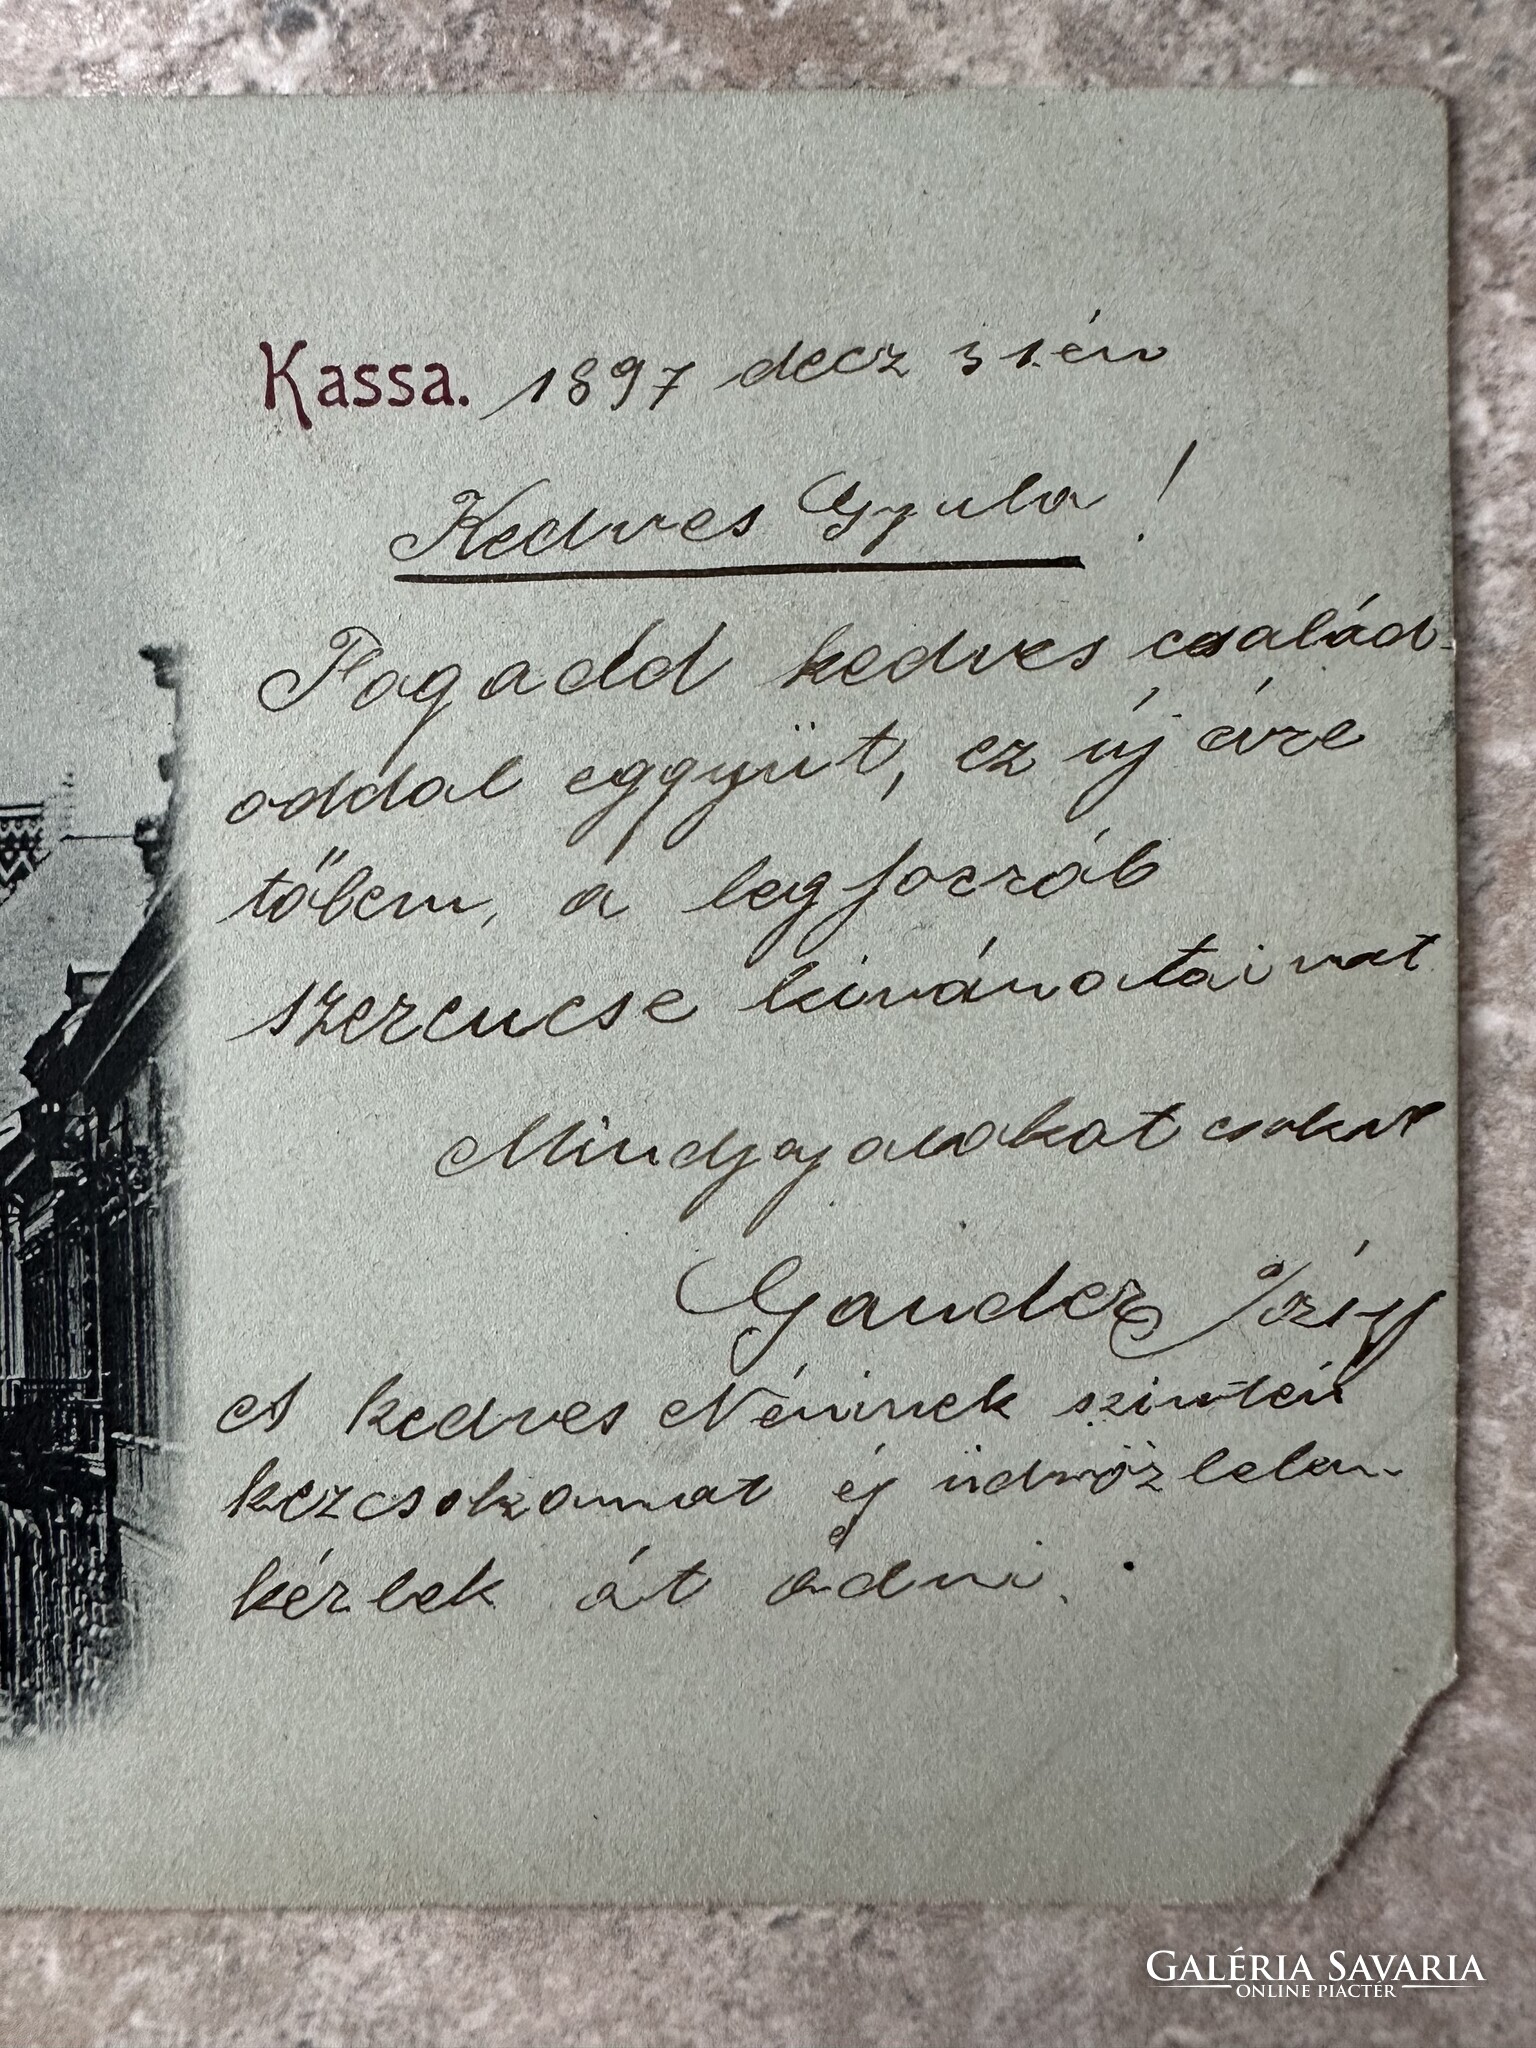 Kassa. 1897 decz 31én
Kedves Gyula!
Fogadd kedves család-
oddal eggyüt, ez új évre
tőlem, a legforráb
szerencse kivánataimat
Mindgyajatokat csokol
Gander
A kedves Néninek szintén
kezcsokomat és üdvözletem
kérlek át adni.
GALÉRIA SAVARIA
ONLINE PIACTÉR